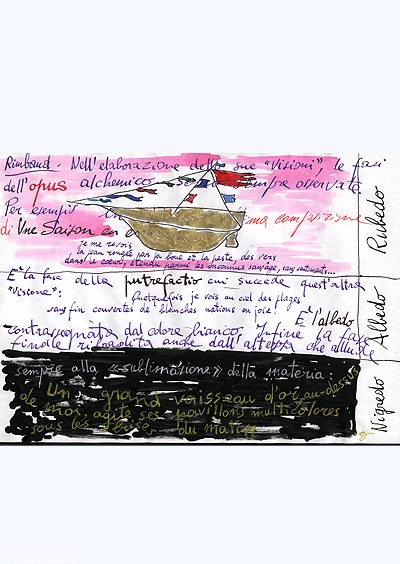 Rimbaud. Nell'elaborazione delle sue "Visioni", le fasi
dell'opus alchemico sempre osservate
Per esempio ima composizione
di Une Saison en
je me revois
la peau rongée par la boue et la peste, des vers
dans le cœur, étendu parmi les inconnus sans âge, sans sentiments...
È la fase della putrefactio cui succede quest'altra
"visione":
Quelquefois je vois au ciel des plages
sans fin couvertes de blanches nations en joie!
È l'albedo
contrassegnata dal colore bianco. Infine la fase
finale ribadita anche dall'altezza che allude
sempre alla «sublimazione» della materia:
Un grand vaisseau d'or, au-dessus
de moi, agite ses pavillons multicolores
sous les brises du matin
Nigredo Albedo Rubedo